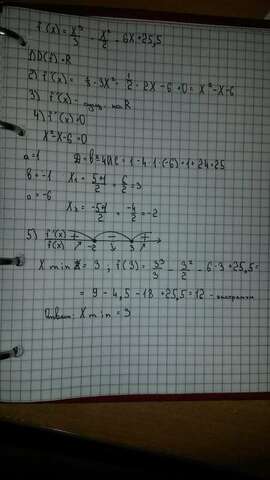 f(x) = x³/3 - x²/2 - 6x + 25,5
1) D(f) = R
2) f'(x) = 1/3 · 3x² - 1/2 · 2x - 6 + 0 = x² - x - 6
3) f'(x) - сущ. на R
4) f'(x) = 0
x² - x - 6 = 0
a = 1 D = b² - 4ac = 1 - 4 · 1 · (-6) = 1 + 24 = 25
b = -1 x₁ = 5+1/2 = 6/2 = 3
c = -6
x₂ = -5+1/2 = -4/2 = -2
5) f'(x) + - +
f(x) -2 3
x min = 3 ; f(3) = 3³/3 - 3²/2 - 6·3 + 25,5 =
= 9 - 4,5 - 18 + 25,5 = 12 - экстремум
Ответ: x min = 3